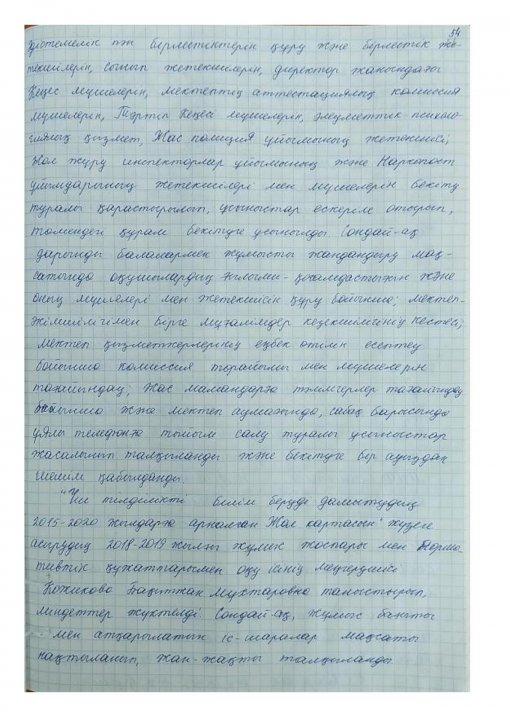 54
әдістемелік пән бірлестіктерін құру және бірлестік же-
текшілерін, сынып жетекшілерін, директор жанындағы
Кеңес мүшелерін, мектептің аттестациялық комиссия
мүшелерін, Тәртіп Кеңесі мүшелерін, әлуметтік психоло-
гиялық қызмет, Жас полиция ұйымының жетекшісі,
Жол жүру инспекторлар ұйымының және Наркопост
ұйымдарының жетекшілері мен мүшелерін бекіту
туралы қарастырылып, ұсыныстар ескеріле отырып,
төмендегі құрам бекітуге ұсынылды. Сондай-ақ
дарынды балалармен жұмысты жандандыру мақ-
сатында оқушылардың ғылыми-қоғамдастығын және
оның мүшелері мен жетекшісін құру бойынша; мектеп-
әкімшілігімен бірге мұғалімдер кезекшілігінің кестесі;
мектеп қызметкерлерінің еңбек өтілін есептеу
бойынша комиссия төрағалығы мен мүшелерін
тағайындау; Жас мамандарға тәлімгерлер тағайындау
бойынша және мектеп аумағында, сабақ барысында
ұялы телефонға тыйым салу туралы ұсыныстар
жасалынып талқыланды және бекітуге бір ауыздан
шешім қабылданды.
"Үш тілділікті білім беруді дамытудың
2015-2020 жылдарға арналған Жол картасын" жүзеге
асырудың 2018-2019 жылғы жұмыс жоспары мен Норма-
тивтік құжаттарымен оқу ісінің меңгерушісі
Кожикова Бақытжан Мұхтаровна таныстырып,
міндеттер жүктелді. Сондай-ақ, жұмыс бағыты
мен атқарылатын іс-шаралар мақсаты
нақтыланып, жан-жақты талқыланды